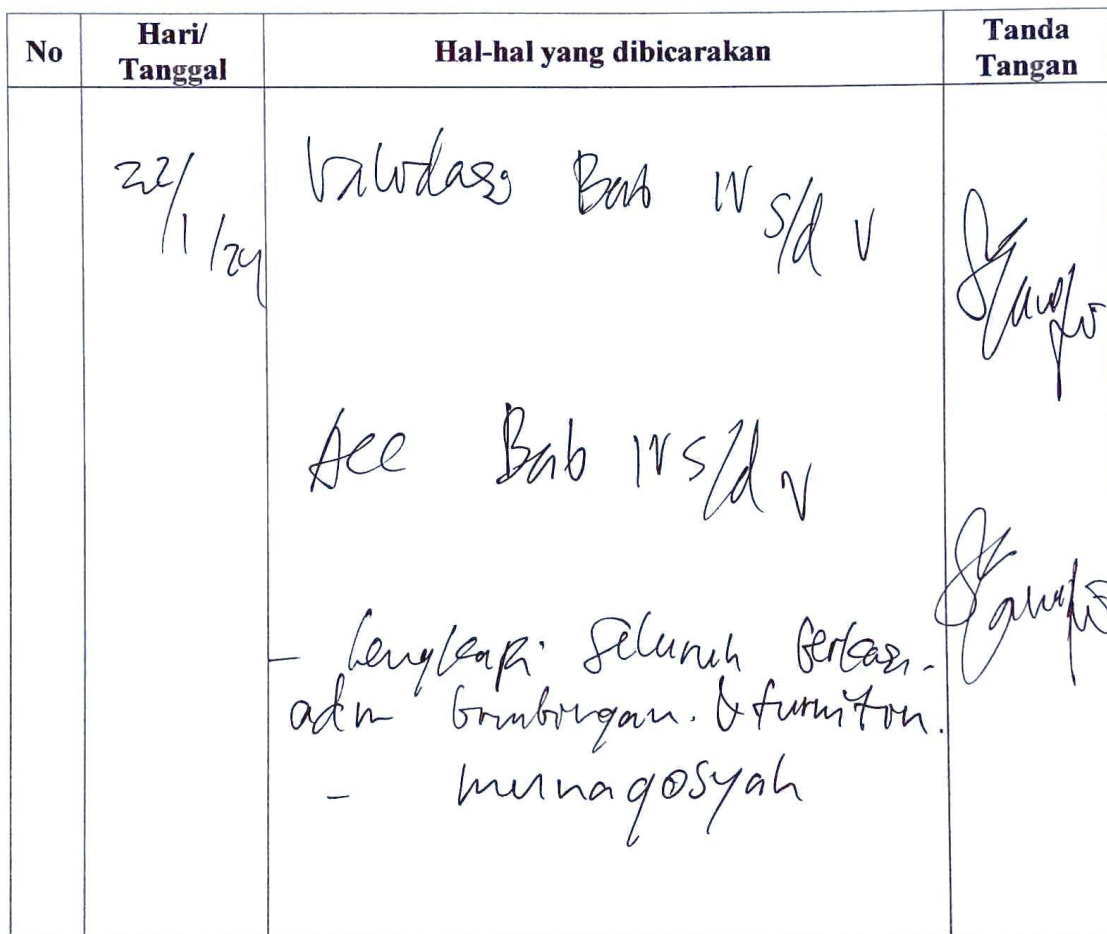 No
Hari/
Tanggal
Hal-hal yang dibicarakan
Tanda
Tangan
22/1/24
Validasi Bab IV s/d V
Acc Bab IV s/d V
- Lengkapi seluruh berkas
adm bimbingan. &
- munaqosyah